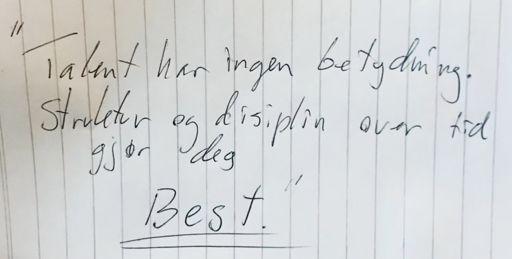 "Talent har ingen betydning.
Struktur og disiplin over tid
gjør deg
Best."